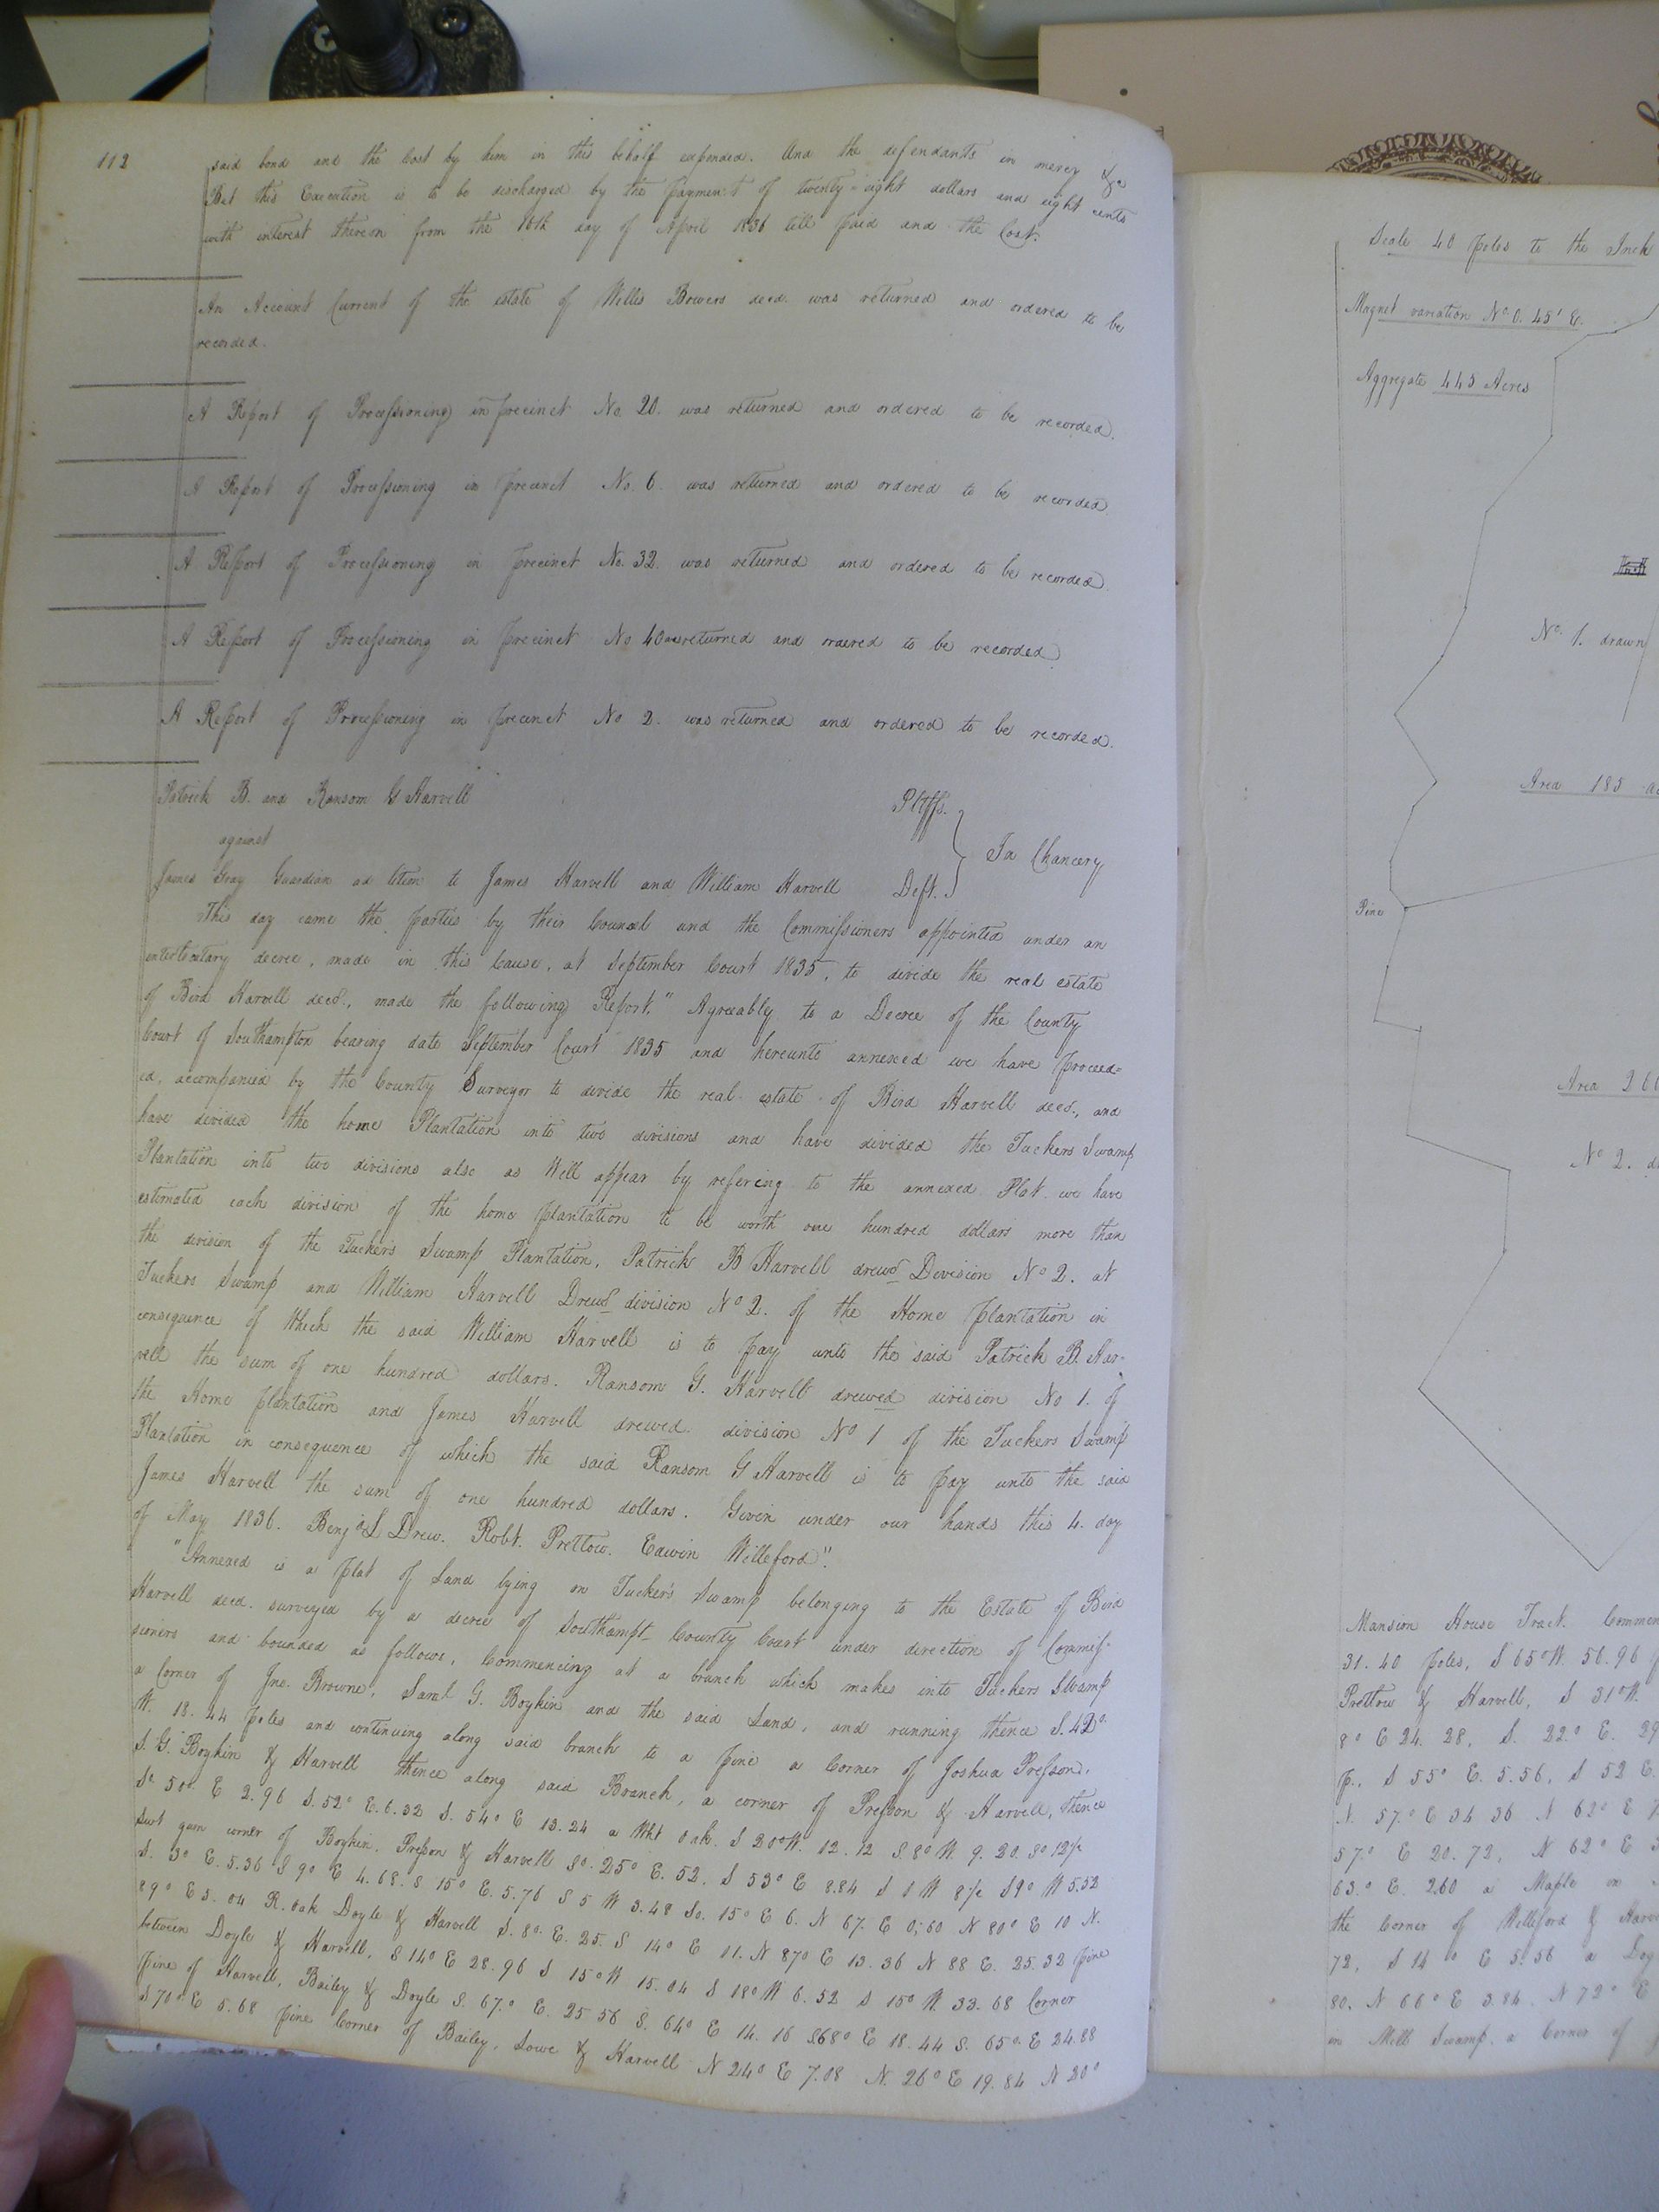 112
said bond and the Cost by him in this behalf expended. And the defendants in mercy &c
But this Execution is to be discharged by the payment of twenty eight dollars and eight cents
with interest thereon from the 16th day of April 1836 till paid and the Cost.
An Account Current of the estate of Willis Bowers decd. was returned and ordered to be
recorded.
A Report of Processioning in precinct No. 20. was returned and ordered to be recorded.
A Report of Processioning in precinct No. 6. was returned and ordered to be recorded
A Report of Processioning in precinct No. 32. was returned and ordered to be recorded.
A Report of Processioning in precinct No 40 was returned and ordered to be recorded
A Report of Processioning in precinct No 2. was returned and ordered to be recorded.
Patrick B. and Ransom G Harvell Pltffs.
against
In Chancery
James Gray Guardian ad litem to James Harvell and William Harvell Deft.
This day came the parties by their Counsel and the Commissioners appointed under an
interlocutary decree, made in this Cause, at September Court 1835, to divide the real estate
of Bird Harvell decd., made the following Report. " Agreeably to a Decree of the County
Court of Southampton bearing date September Court 1835 and hereunto annexed we have proceed-
ed, accompanied by the County Surveyor to divide the real estate of Bird Harvell decd., and
have divided the home Plantation into two divisions and have divided the Tuckers Swamp
Plantation into two divisions also as Will appear by refering to the annexed Plat. we have
estimated each division of the home plantation to be worth one hundred dollars more than
the division of the Tucker's Swamp Plantation, Patrick B Harvell drewd Division No 2. at
Tuckers Swamp and William Harvell Drewd division No 2. of the Home plantation in
consequence of Which the said William Harvell is to pay unto the said Patrick B. Har-
vell the sum of one hundred dollars. Ransom G. Harvell drewed division No 1. of
the Home plantation and James Harvell drewed division No 1 of the Tuckers Swamp
Plantation in consequence of which the said Ransom G Harvell is to pay unto the said
James Harvell the sum of one hundred dollars. Given under our hands this 4. day
of May 1836. Benj. L Drew. Robt. Prettow. Edwin Willeford".
"Annexed is a plat of Land lying on Tucker's Swamp belonging to the Estate of Bird
Harvell decd. surveyed by a decree of Southampt County Court under direction of Commis-
sioners and bounded as follows, Commencing at a branch which makes into Tuckers Swamp
a Corner of Jno. Browne, Saml G. Boykin and the said Land, and running thence S. 42°
W. 18. 44 poles and continuing along said branch to a pine a Corner of Joshua Presson,
S. G. Boykin & Harvell thence along said Branch, a corner of Presson & Harvell, thence
So. 50° E 2.96 S. 52° E. 6.32 S. 54° E 13.24 a Wht oak. S 20° W. 12. 12 S 8° W 9. 20. So 12½
swt gum corner of Boykin. Presson & Harvell So. 25° E. 52. S 53° E 8.84 S 1 W 8½ S 9° W 5.52
S. 3° E. 5.36 S 9° E 4.68. S 15° E. 5.76 S 5 W 3.48 So. 15° E 6. N 67. E 0;60 N 80° E 10 N.
89° E 5. 04 R. oak Doyle & Harvell S. 8° E. 25. S 14° E 11. N 87° E 13. 36 N 88 E. 25.32 pine
between Doyle & Harvell, S 14° E 28. 96 S 15° W 15. 04 S 18° W 6. 52 S 15° W 33. 68 Corner
Pine of Harvell, Bailey & Doyle S. 67.° E. 25 56 S. 64° E 14. 16 S68° E 18. 44 S. 65° E 24.88
S 70° E 5.68 pine Corner of Bailey, Lowe & Harvell N 24° E 7.08 N. 26° E 19. 84 N 20°
Scale 40 poles to the Inch
Magnet variation No. 0. 45' E.
Aggregate 445 Acres
No. 1. drawn
Area 185
Pine
Area 260
No 2.
Mansion House Tract.
31. 40 poles, S 65° W. 56. 96
Prettow & Harvell, S 31° W.
8° E 24. 28, S. 22° E. 29
p., S 55° E. 5.56, S 52 E.
N. 57.° E 36 36 N 62° E
57° E 20. 72, N 62° E
63.° E. 2.60 a Maple in
the Corner of Willeford &
72, S 14° E 5.56 a
80. N 66° E 3.84. N 72° E
in Mill Swamp. a Corner of